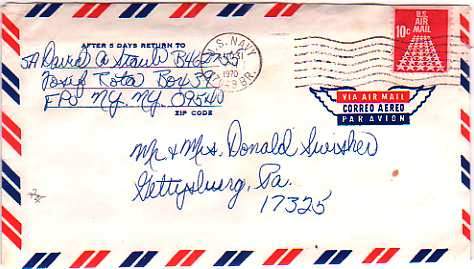 AFTER 5 DAYS RETURN TO
SA David A Staub B462755
Josef Rota Box 39
FPO N.Y. N.Y. 09540
ZIP CODE
U.S. NAVY
1970
BR.
U.S.
AIR
MAIL
10c
VIA AIR MAIL
CORREO AEREO
PAR AVION
Mr & Mrs. Donald Swisher
Gettysburg, Pa.
17325